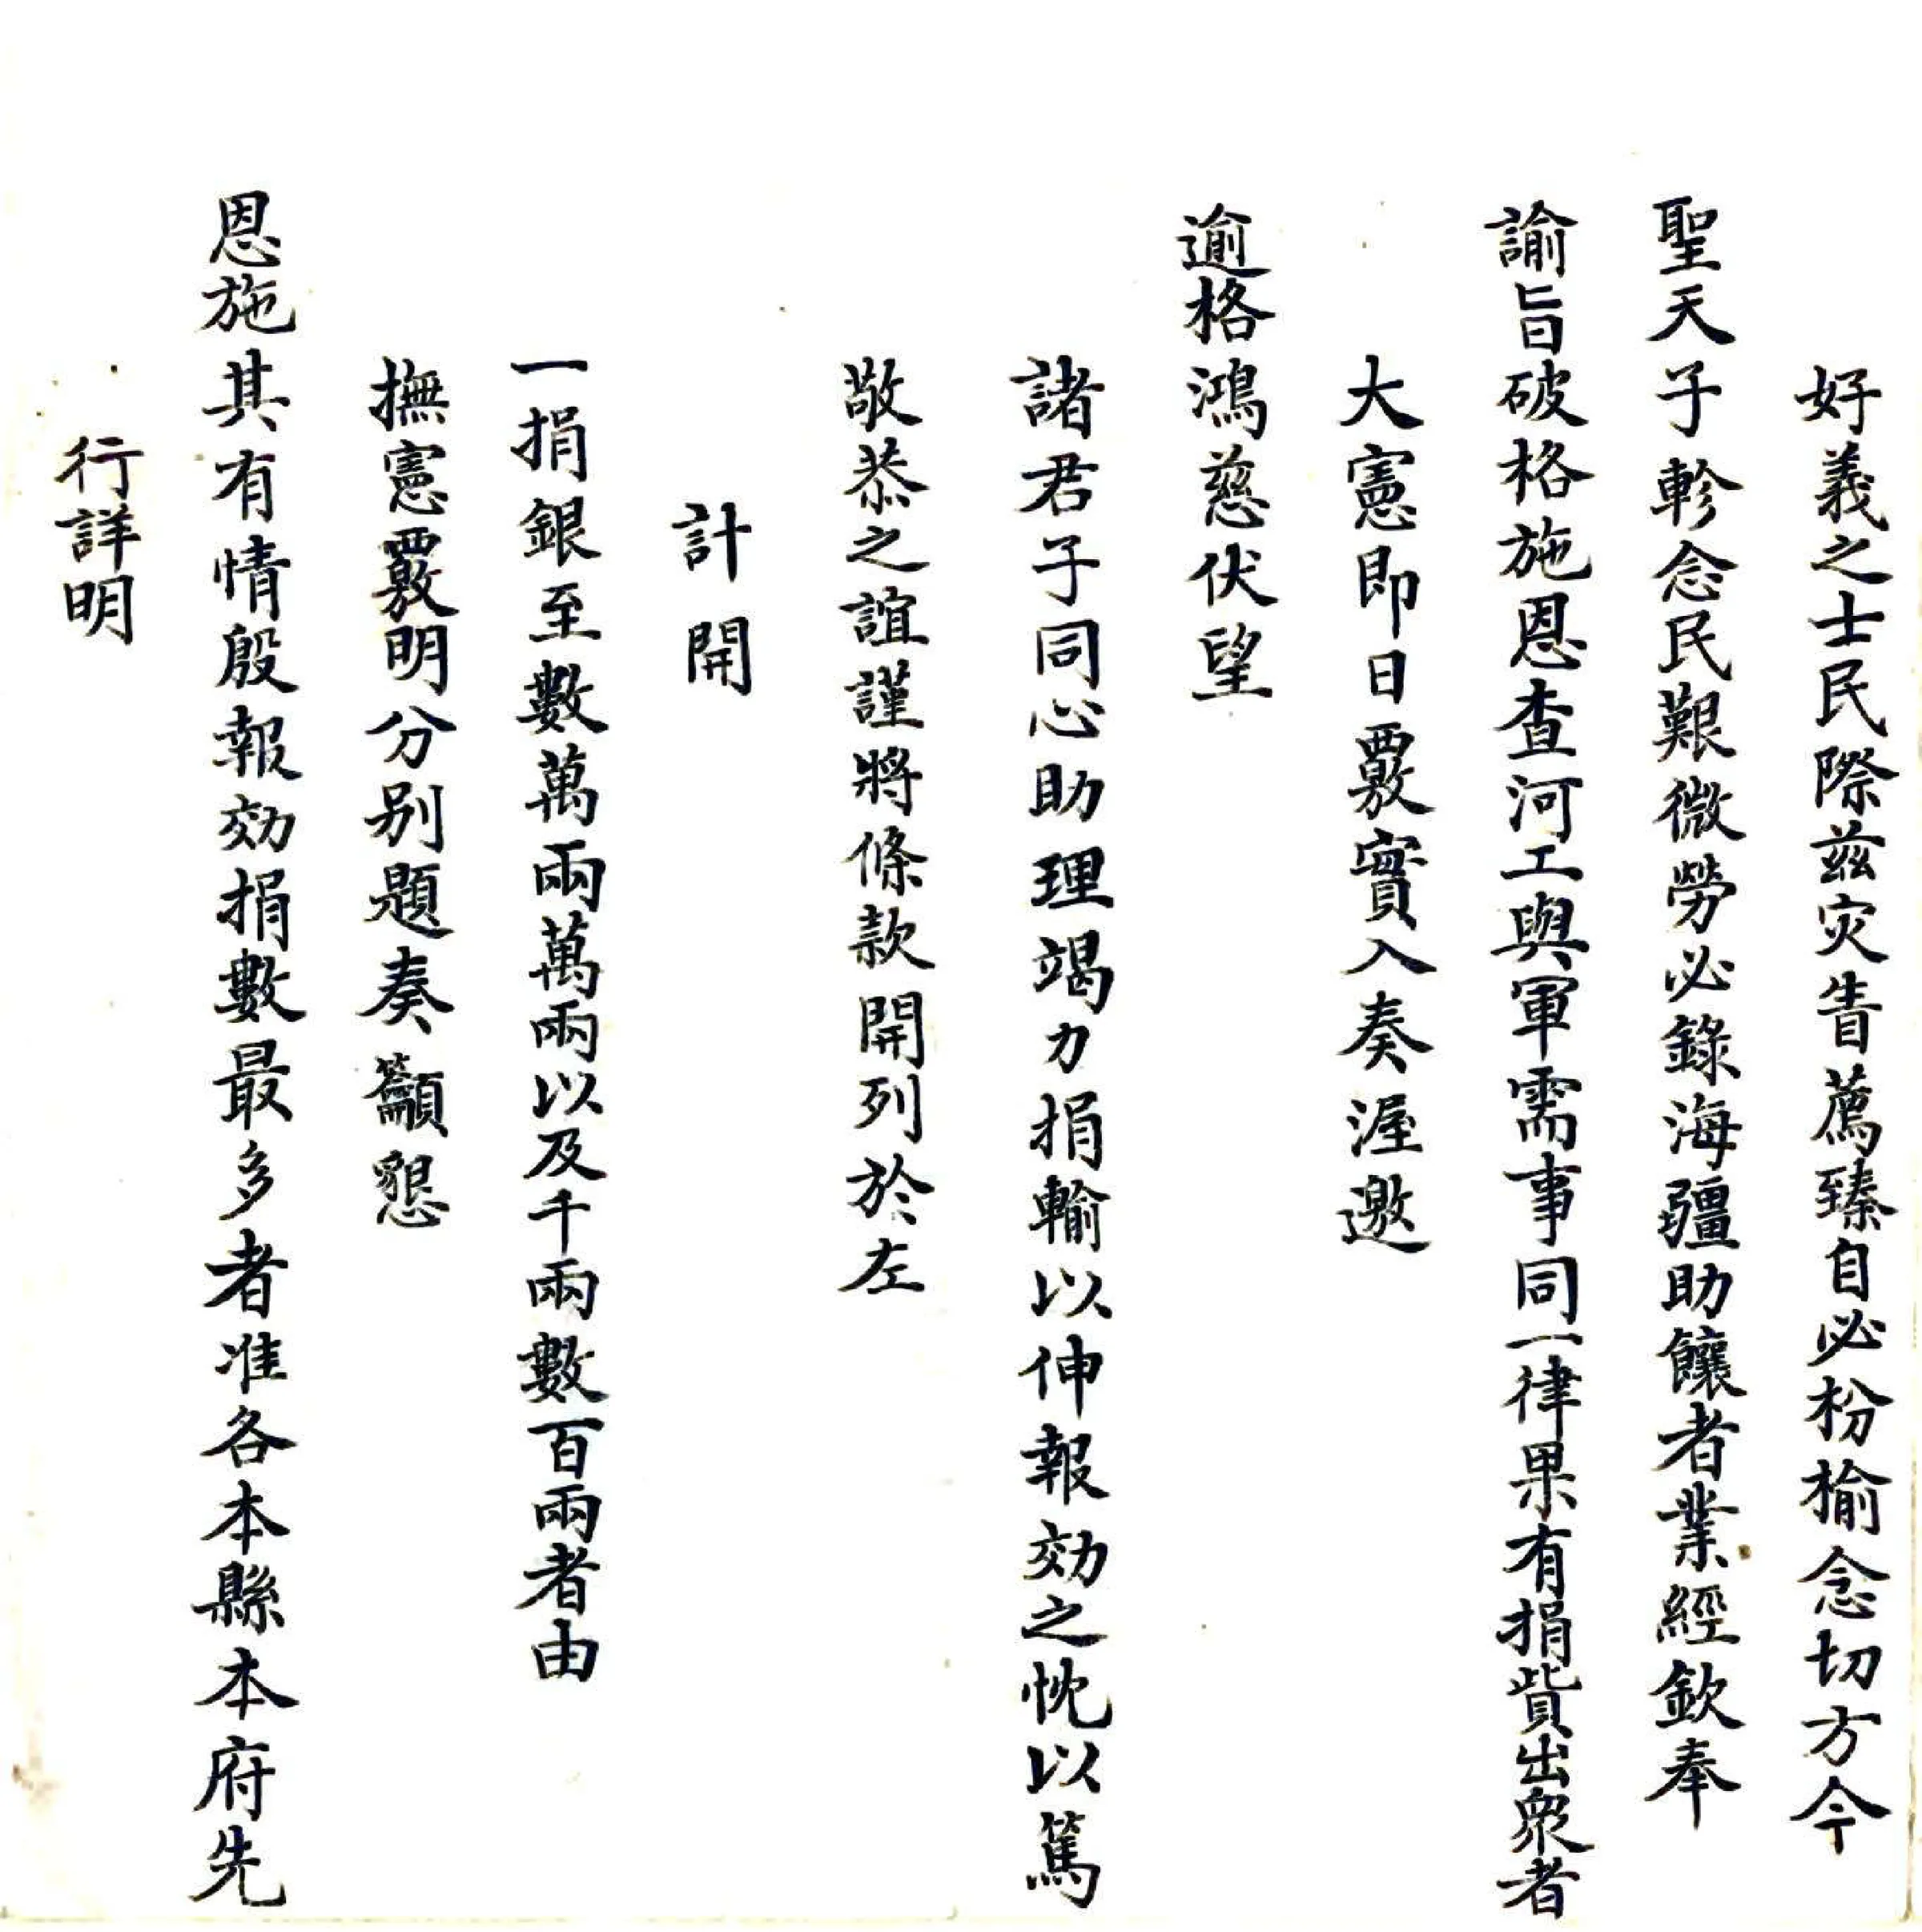 好義之士民際兹灾眚薦臻自必枌榆念切方今
聖天子軫念民艱微勞必錄海疆助饟者業經欽奉
諭旨破格施恩查河工與軍需事同一律果有捐貲出衆者
大憲即日覈實入奏渥邀
逾格鴻慈伏望
諸君子同心助理竭力捐輸以伸報効之忱以篤
敬恭之誼謹將條款開列於左
計開
一捐銀至數萬兩萬兩以及千兩數百兩者由
撫憲覈明分别題奏籲懇
恩施其有情殷報効捐數最多者准各本縣本府先
行詳明